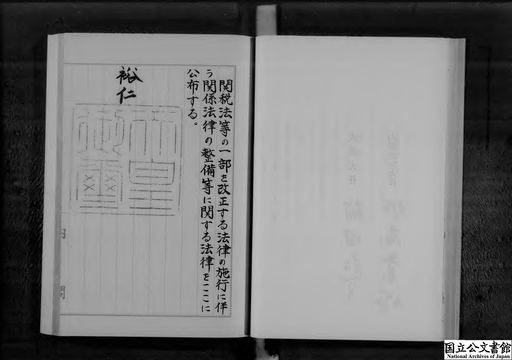 関税法等の一部を改正する法律の施行に伴
う関係法律の整備等に関する法律をここに
公布する。
裕仁
内閣
国立公文書館
National Archives of Japan